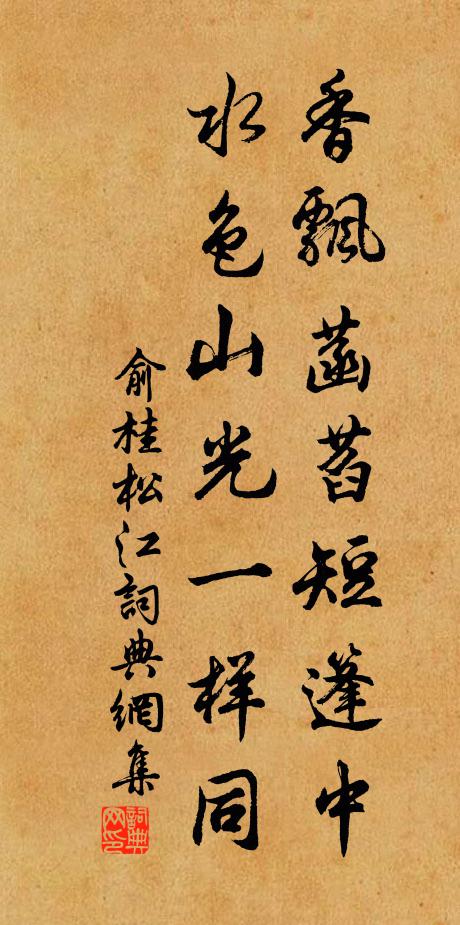 香飄菡萏短蓬中
水色山光一样同
俞桂松江詞典網集
詞典
网印